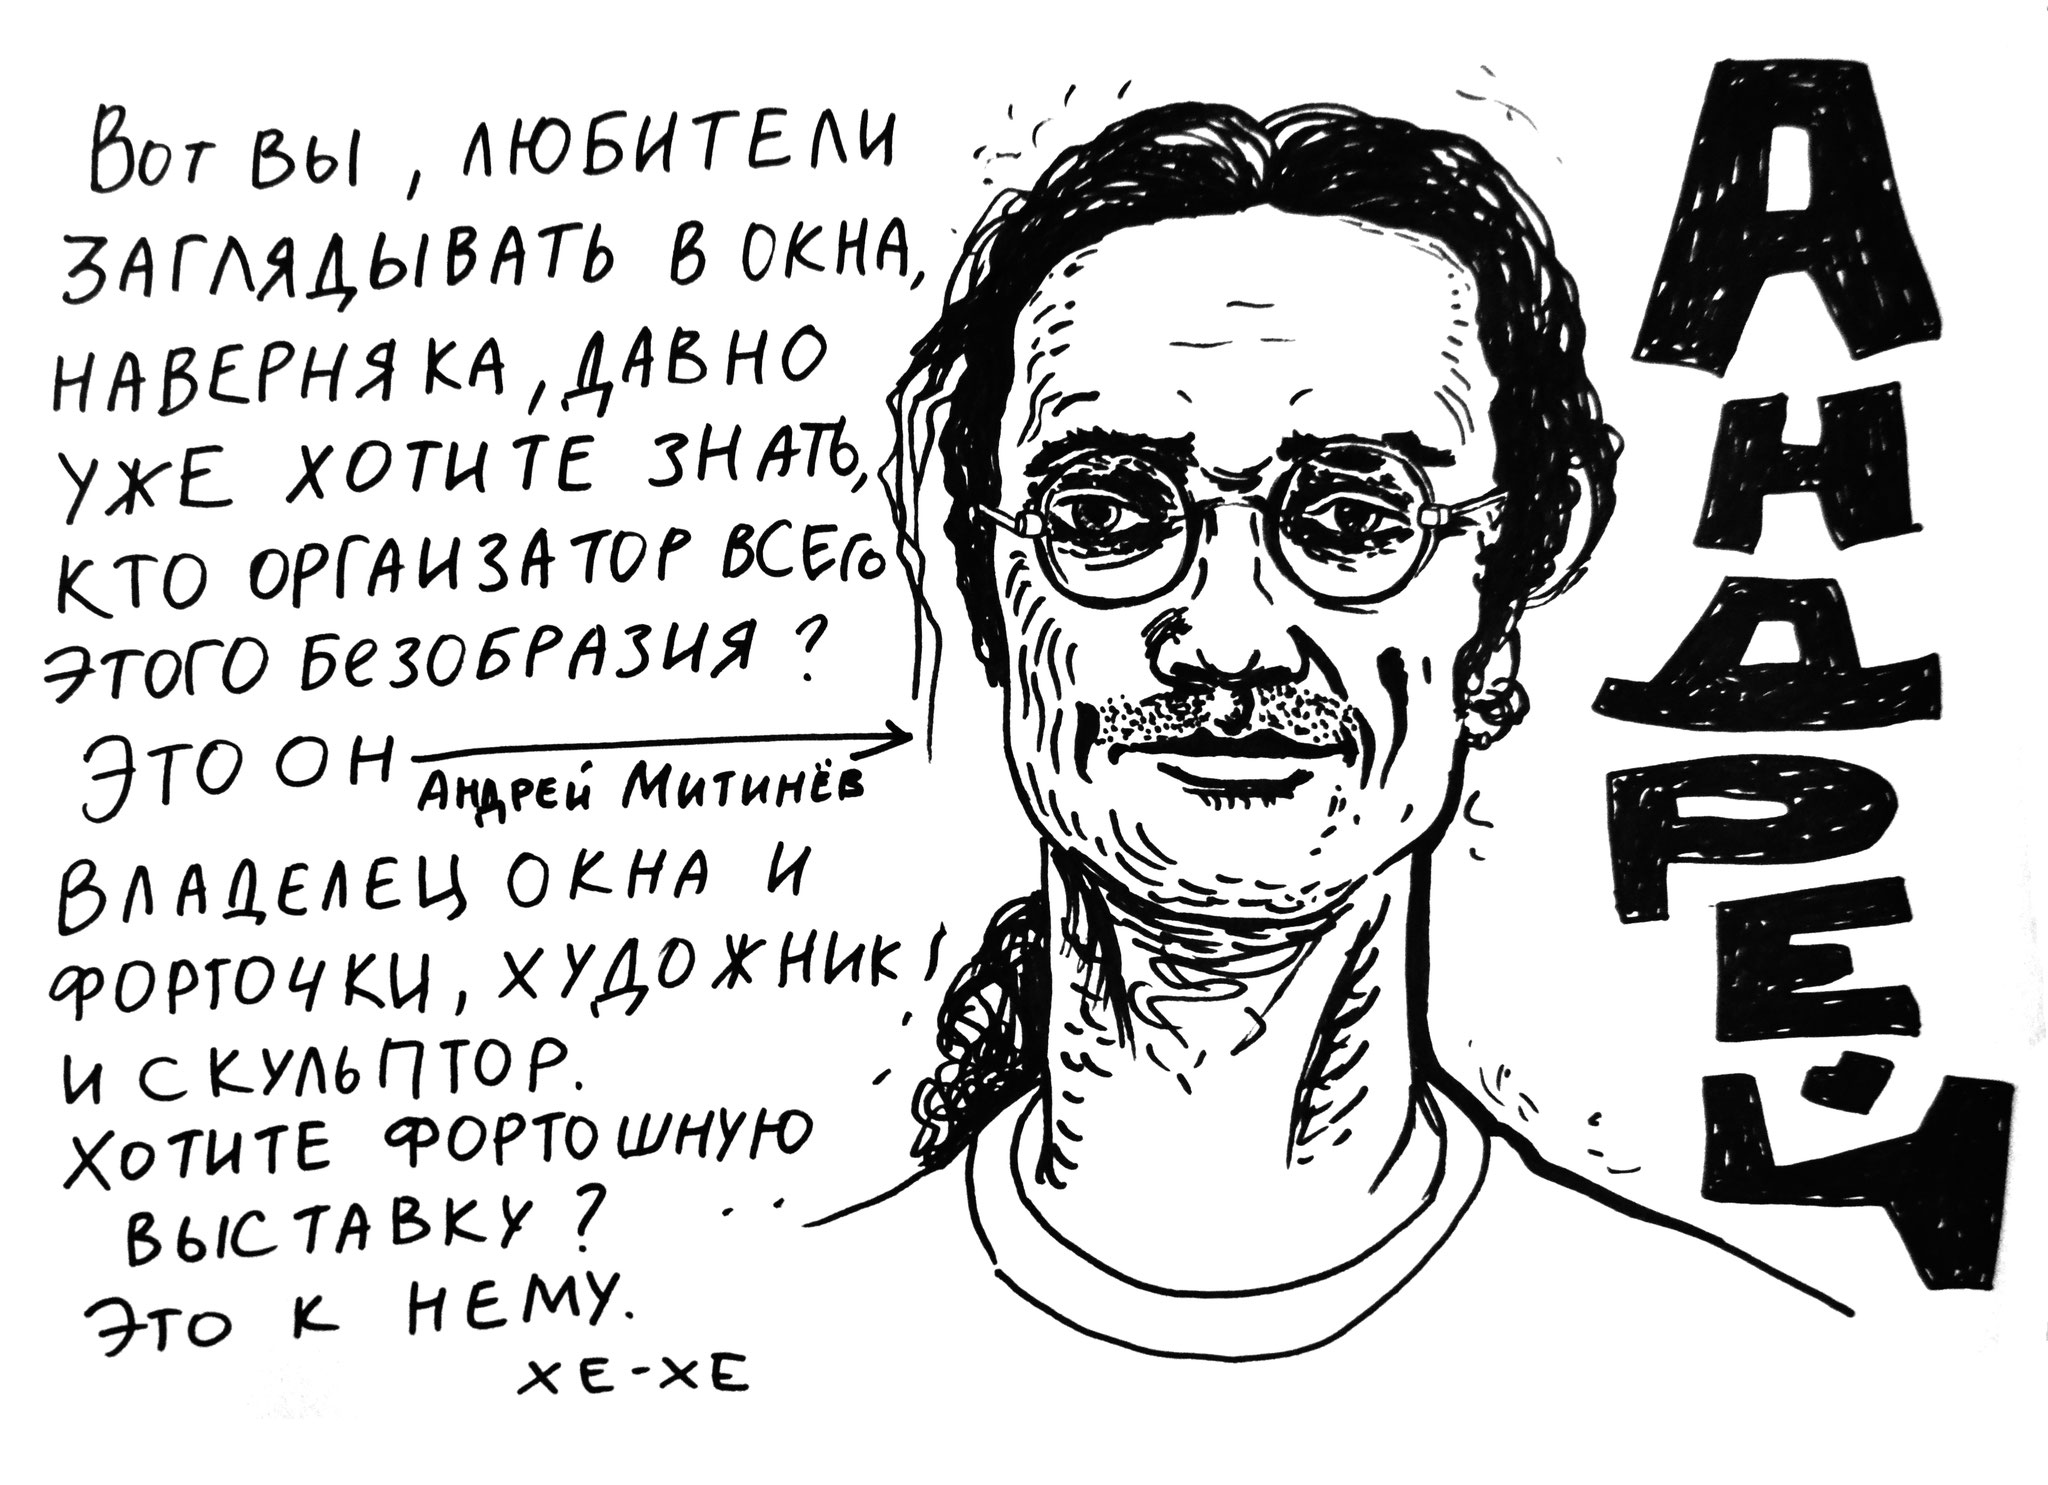 Вот вы, любители
заглядывать в окна,
наверняка, давно
уже хотите знать,
кто оргаизатор всего
этого безобразия?
Это он
Андрей Митинёв
Владелец окна и
форточки, художник
и скульптор.
Хотите фортошную
выставку?
Это к нему.
хе-хе
АНДРЕЙ